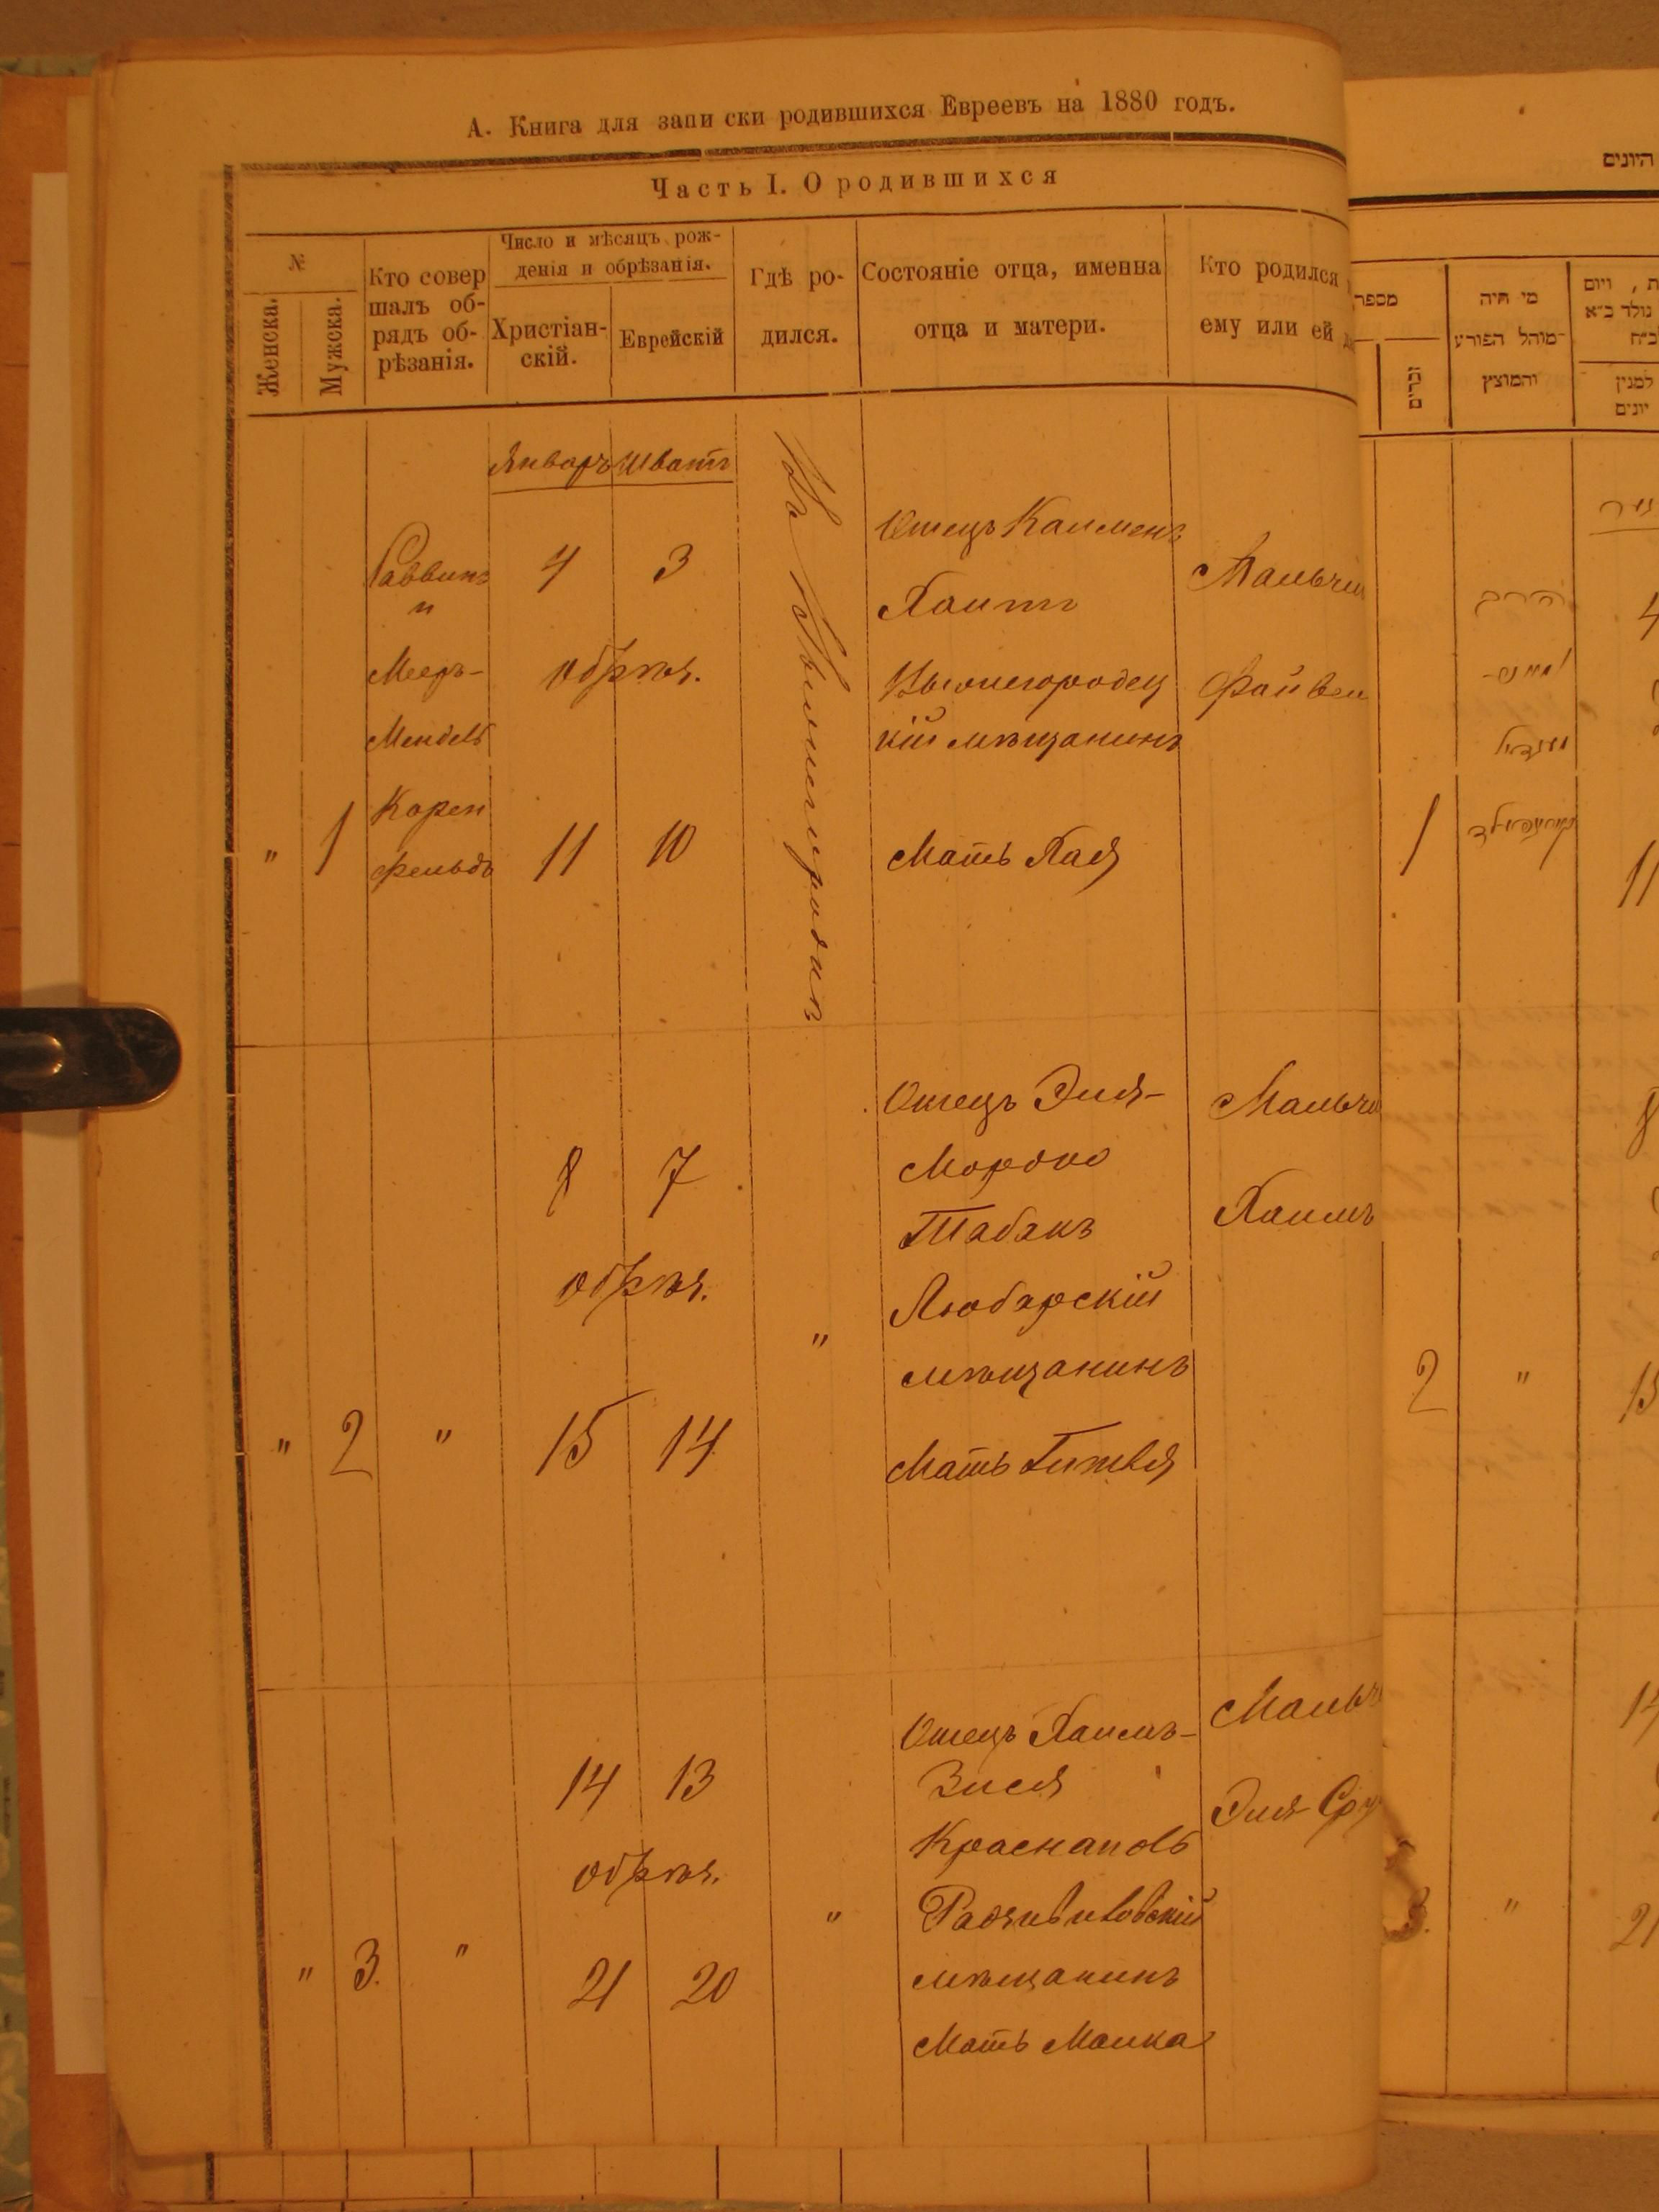 А. Книга для запи ски родившихся Евреевъ на 1880 годъ.
Часть I. О родившихся
№
Женска.
Мужска.
Кто совер
шалъ об-
рядъ об-
рѣзанія.
Число и мѣсяцъ рож-
денія и обрѣзанія.
Христіан-
скій.
Еврейскій
Гдѣ ро-
дился.
Состояніе отца, именна
отца и матери.
Кто родился
ему или ей
Январь Шватъ
" 1
Раввинъ
и
Мееръ-
Мендель
Корен
фельдъ
4 3
обрѣз.
11 10
Отецъ
Хаитъ
кій мѣщанинъ
Мать Хая
Мальчи
Файвел
" 2 "
8 7
обрѣз.
15 14
"
Отецъ Эля-
Мордко
Табакъ
Любарскій
мѣщанинъ
Мать Гитля
Мальчи
Хаимъ
" 3. "
14 13
обрѣз.
21 20
"
Отецъ Хаимъ-
Зися
мѣщанинъ
Мать Малка
Мальч
Эля Ср
היונים
מספר
זכרים
מי היה
מוהל הפורע
והמוצץ
ת , ויום
נולד כ״א
למנין
יונים
1
11
2 "
15
14
"
21